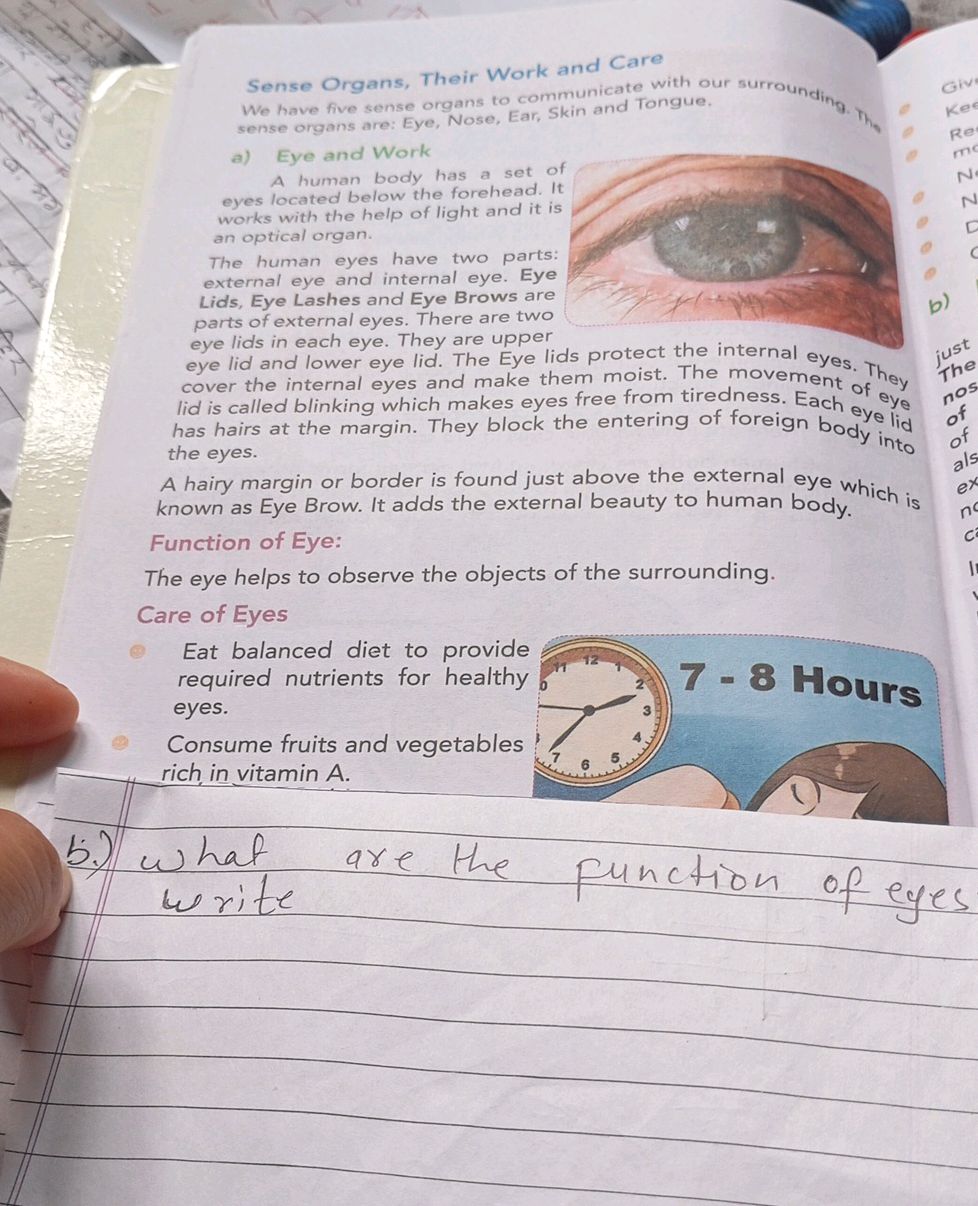 Sense Organs, Their Work and Care
We have five sense organs to communicate with our surrounding. The
sense organs are: Eye, Nose, Ear, Skin and Tongue.
a) Eye and Work
A human body has a set of
eyes located below the forehead. It
works with the help of light and it is
an optical organ.
The human eyes have two parts:
external eye and internal eye. Eye
Lids, Eye Lashes and Eye Brows are
parts of external eyes. There are two
eye lids in each eye. They are upper
eye lid and lower eye lid. The Eye lids protect the internal eyes. They
cover the internal eyes and make them moist. The movement of eye
lid is called blinking which makes eyes free from tiredness. Each eye lid
has hairs at the margin. They block the entering of foreign body into
the eyes.
A hairy margin or border is found just above the external eye which is
known as Eye Brow. It adds the external beauty to human body.
Function of Eye:
The eye helps to observe the objects of the surrounding.
Care of Eyes
Eat balanced diet to provide
required nutrients for healthy
eyes.
Consume fruits and vegetables
rich in vitamin A.
11 12 1
2
3
4
5
6
7
7 - 8 Hours
b)
just
The
nos
of
of
b.) what are the function of eyes
write